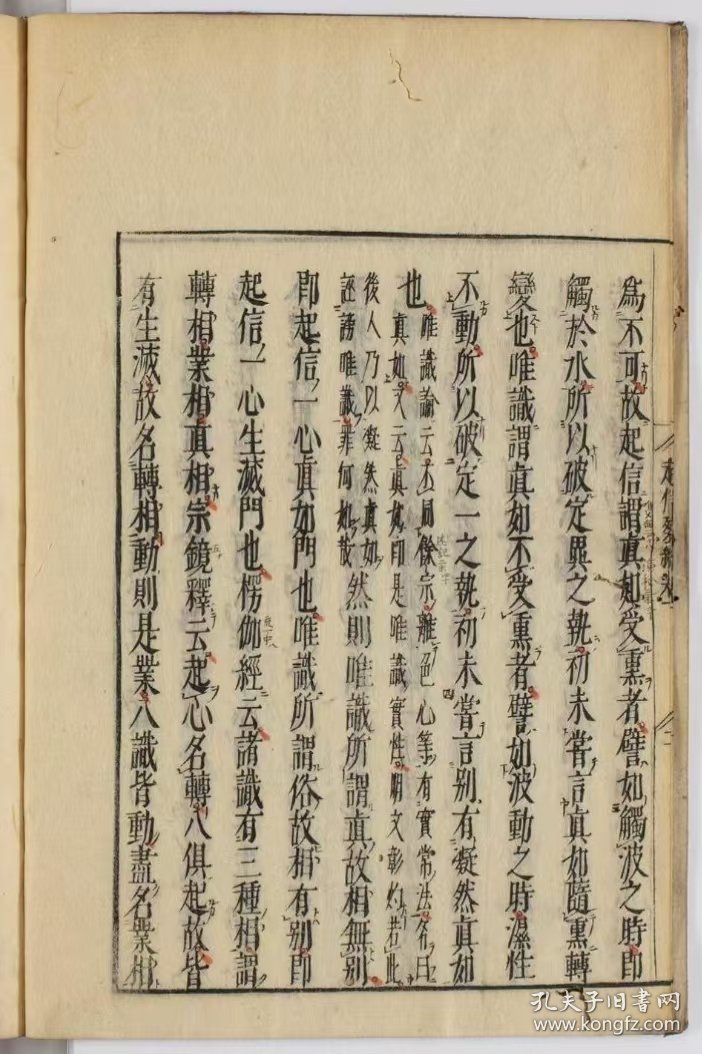 爲不可故起信謂真如受熏者譬如觸波之時即
觸於水所以破定異之執初未嘗言真如隨熏轉
變也唯識謂真如不受熏者譬如波動之時濕性
不動所以破定一之執初未嘗言別有凝然真如
也唯識論云不同餘宗離色心等有實常法名曰
真如又云真如即是唯識實性明文彰灼若此
後人乃以凝然真如
誣謗唯識罪何如哉然則唯識所謂真故相無別
即起信一心真如門也唯識所謂俗故相有別即
起信一心生滅門也楞伽經云諸識有三種相謂
轉相業相真相宗鏡釋云起心名轉八俱起故皆
有生滅故名轉相動則是業八識皆動盡名業相
起信裂網疏
孔夫子旧书网
www.kongfz.com